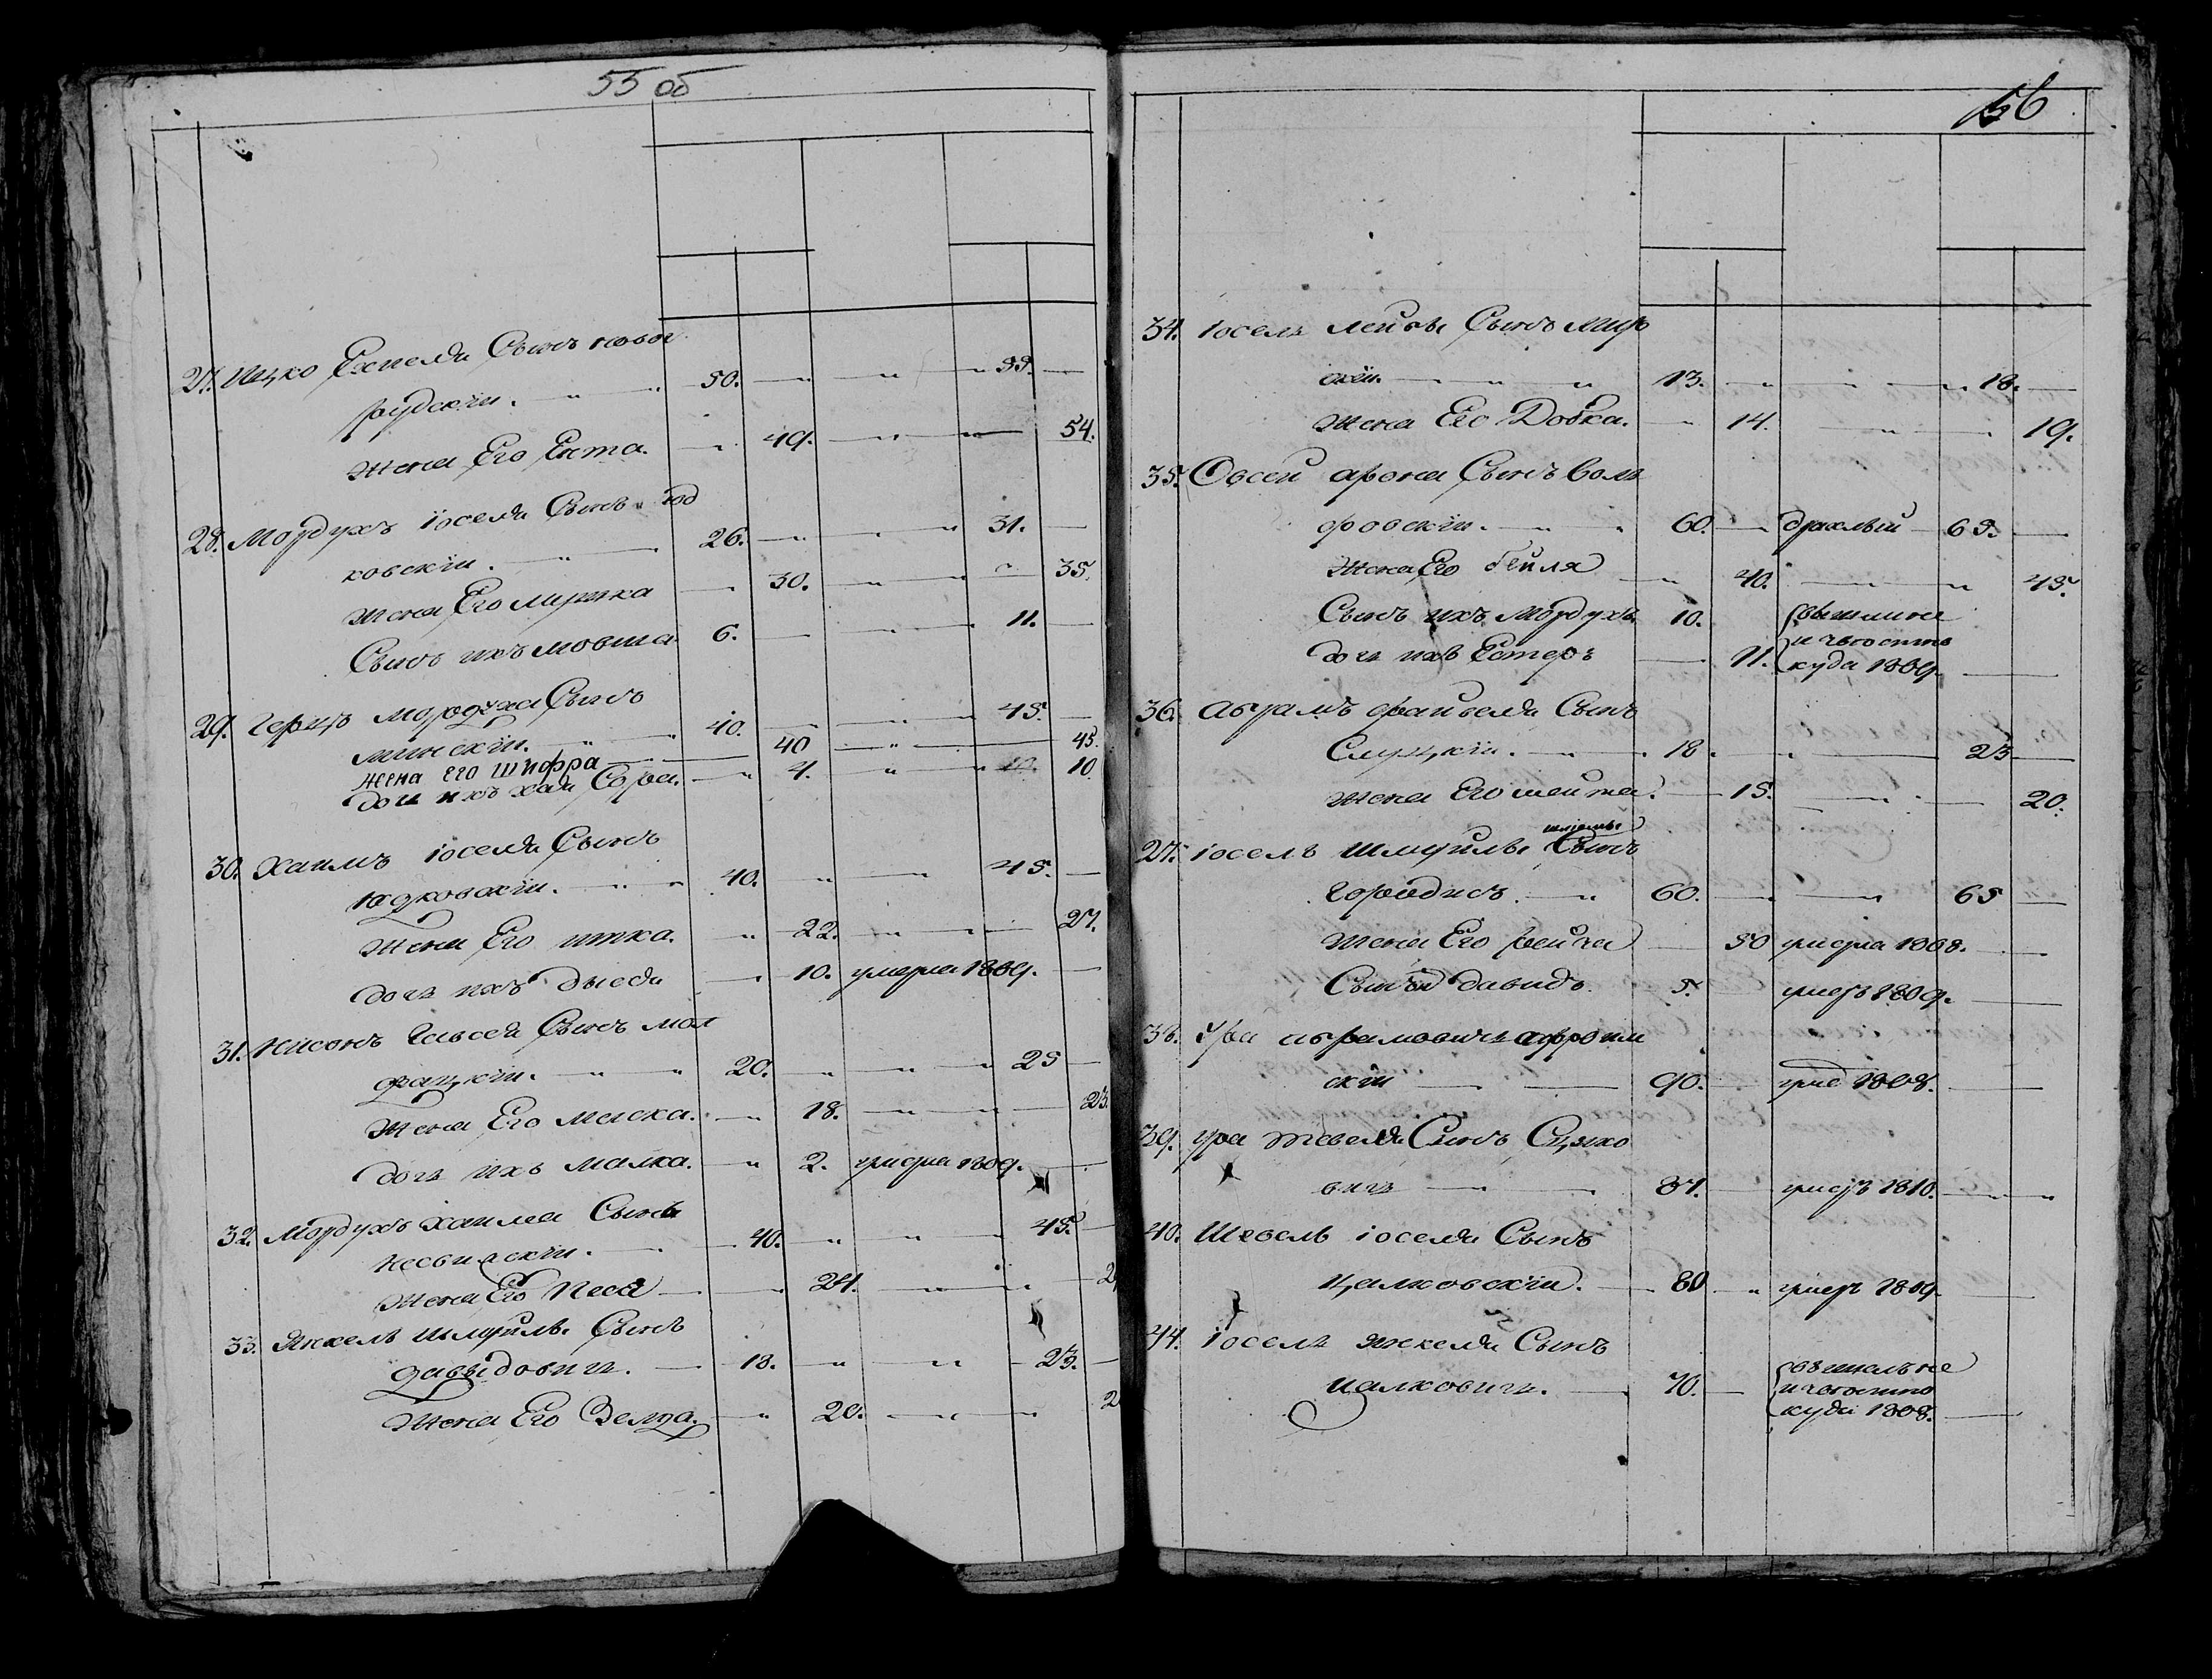 55 об
27. Ицко Ехпеля Сынъ новог
рудскiи. 50. 55.
Жена Его Ента. 49. 54.
28. Мордухъ iоселя Сынъ Юд
ковскiи. 26. 31.
Жена Его Мирка 30. 35.
Сынъ ихъ мовша 6. 11.
29. Герцъ Мордуха Сынъ
минскiи. 40. 45.
Жена его Шифра 40 45.
дочь ихъ хая Сора. 4. 10. 10
30. Хаимъ iоселя Сынъ
Юдковскiи. 40. 45.
Жена Его итка. 22. 27.
дочь ихъ Двеся 10. умерла 1809.
31. Нисонъ Евсея Сынъ мол
фацкiи. 20. 25
Жена Его Менеха. 18. 23.
дочь ихъ Малка. 2. умерла 1809.
32. Мордухъ хаима Сынъ
несвискiи. 40. 45.
Жена Его Песя 24. 2
33. Янкель шмуилы Сынъ
давыдовичь. 18. 23.
Жена Его Зелда. 20. 2
56
34. iосель лейбы Сынъ мир
скiи. 13. 18.
Жена Его Добка. 14. 19.
35. Овсей арона Сынъ воль
фовскiи. 60. дрхлыи 65.
Жена Его бейля 40. 45.
Сынъ ихъ Мордухъ 10. вышли не
дочь ихъ Естеръ 11. ичвестно
куда 1809.
36. Абрамъ файвеля Сынъ
Слуцкiи. 18. 23
Жена Его шейна. 15. 20.
27. iосель шмуилы Сынъ
Городисъ. 60. 65
Жена Его рейча 50 умерла 1808.
Сынъ давидъ 5. умеръ 1809.
38. Ура абрамовичь афроим
скiи 90. уме 1808.
39. ура тевеля Сынъ Сцько
вичь 87. умеръ 1810.
40. Шевель iоселя Сынъ
цалковскiи. 80 умеръ 1809.
44. iосель янкеля Сынъ
цалковичь. 70. вышелъ не
ичвестно
куда 1808.